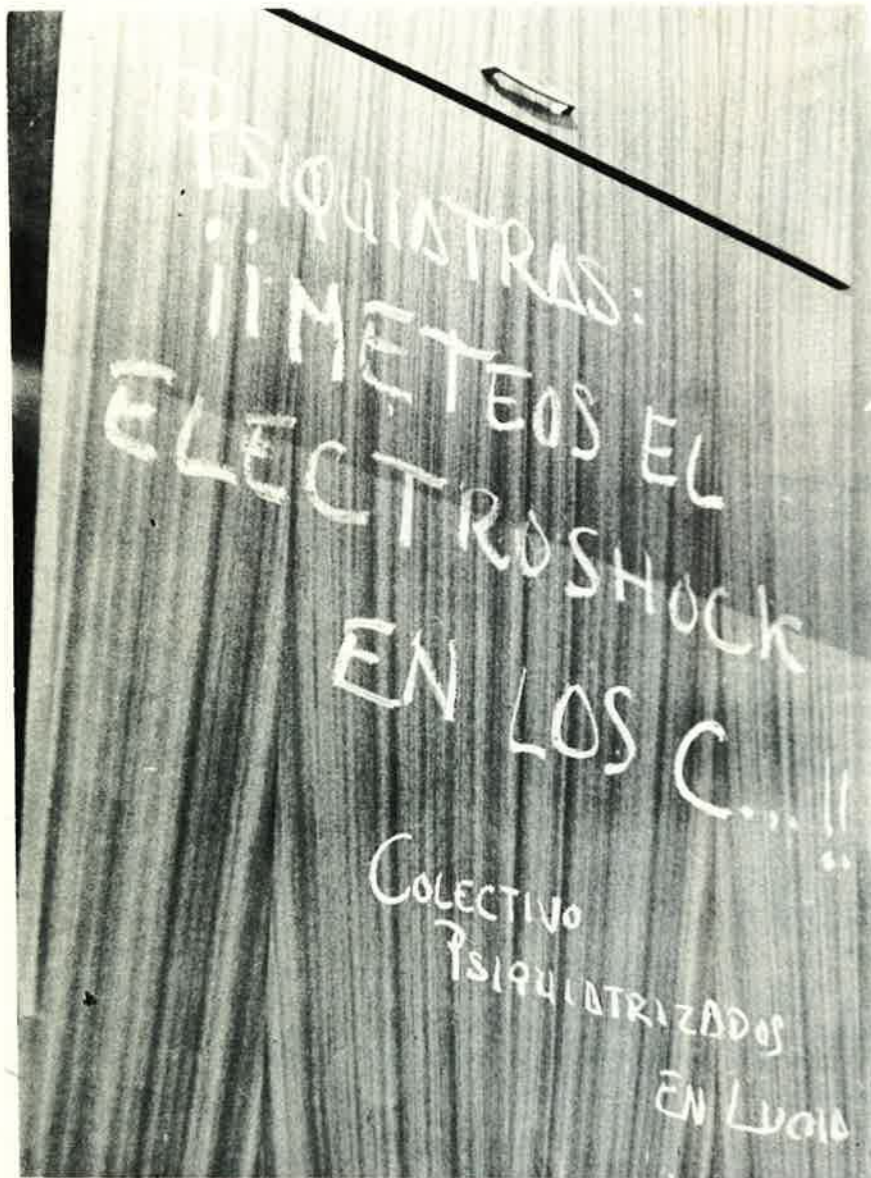 PSIQUIATRAS:
¡¡METEOS EL
ELECTROSHOCK
EN LOS C...!!
COLECTIVO
PSIQUIATRIZADOS
EN LUCHA